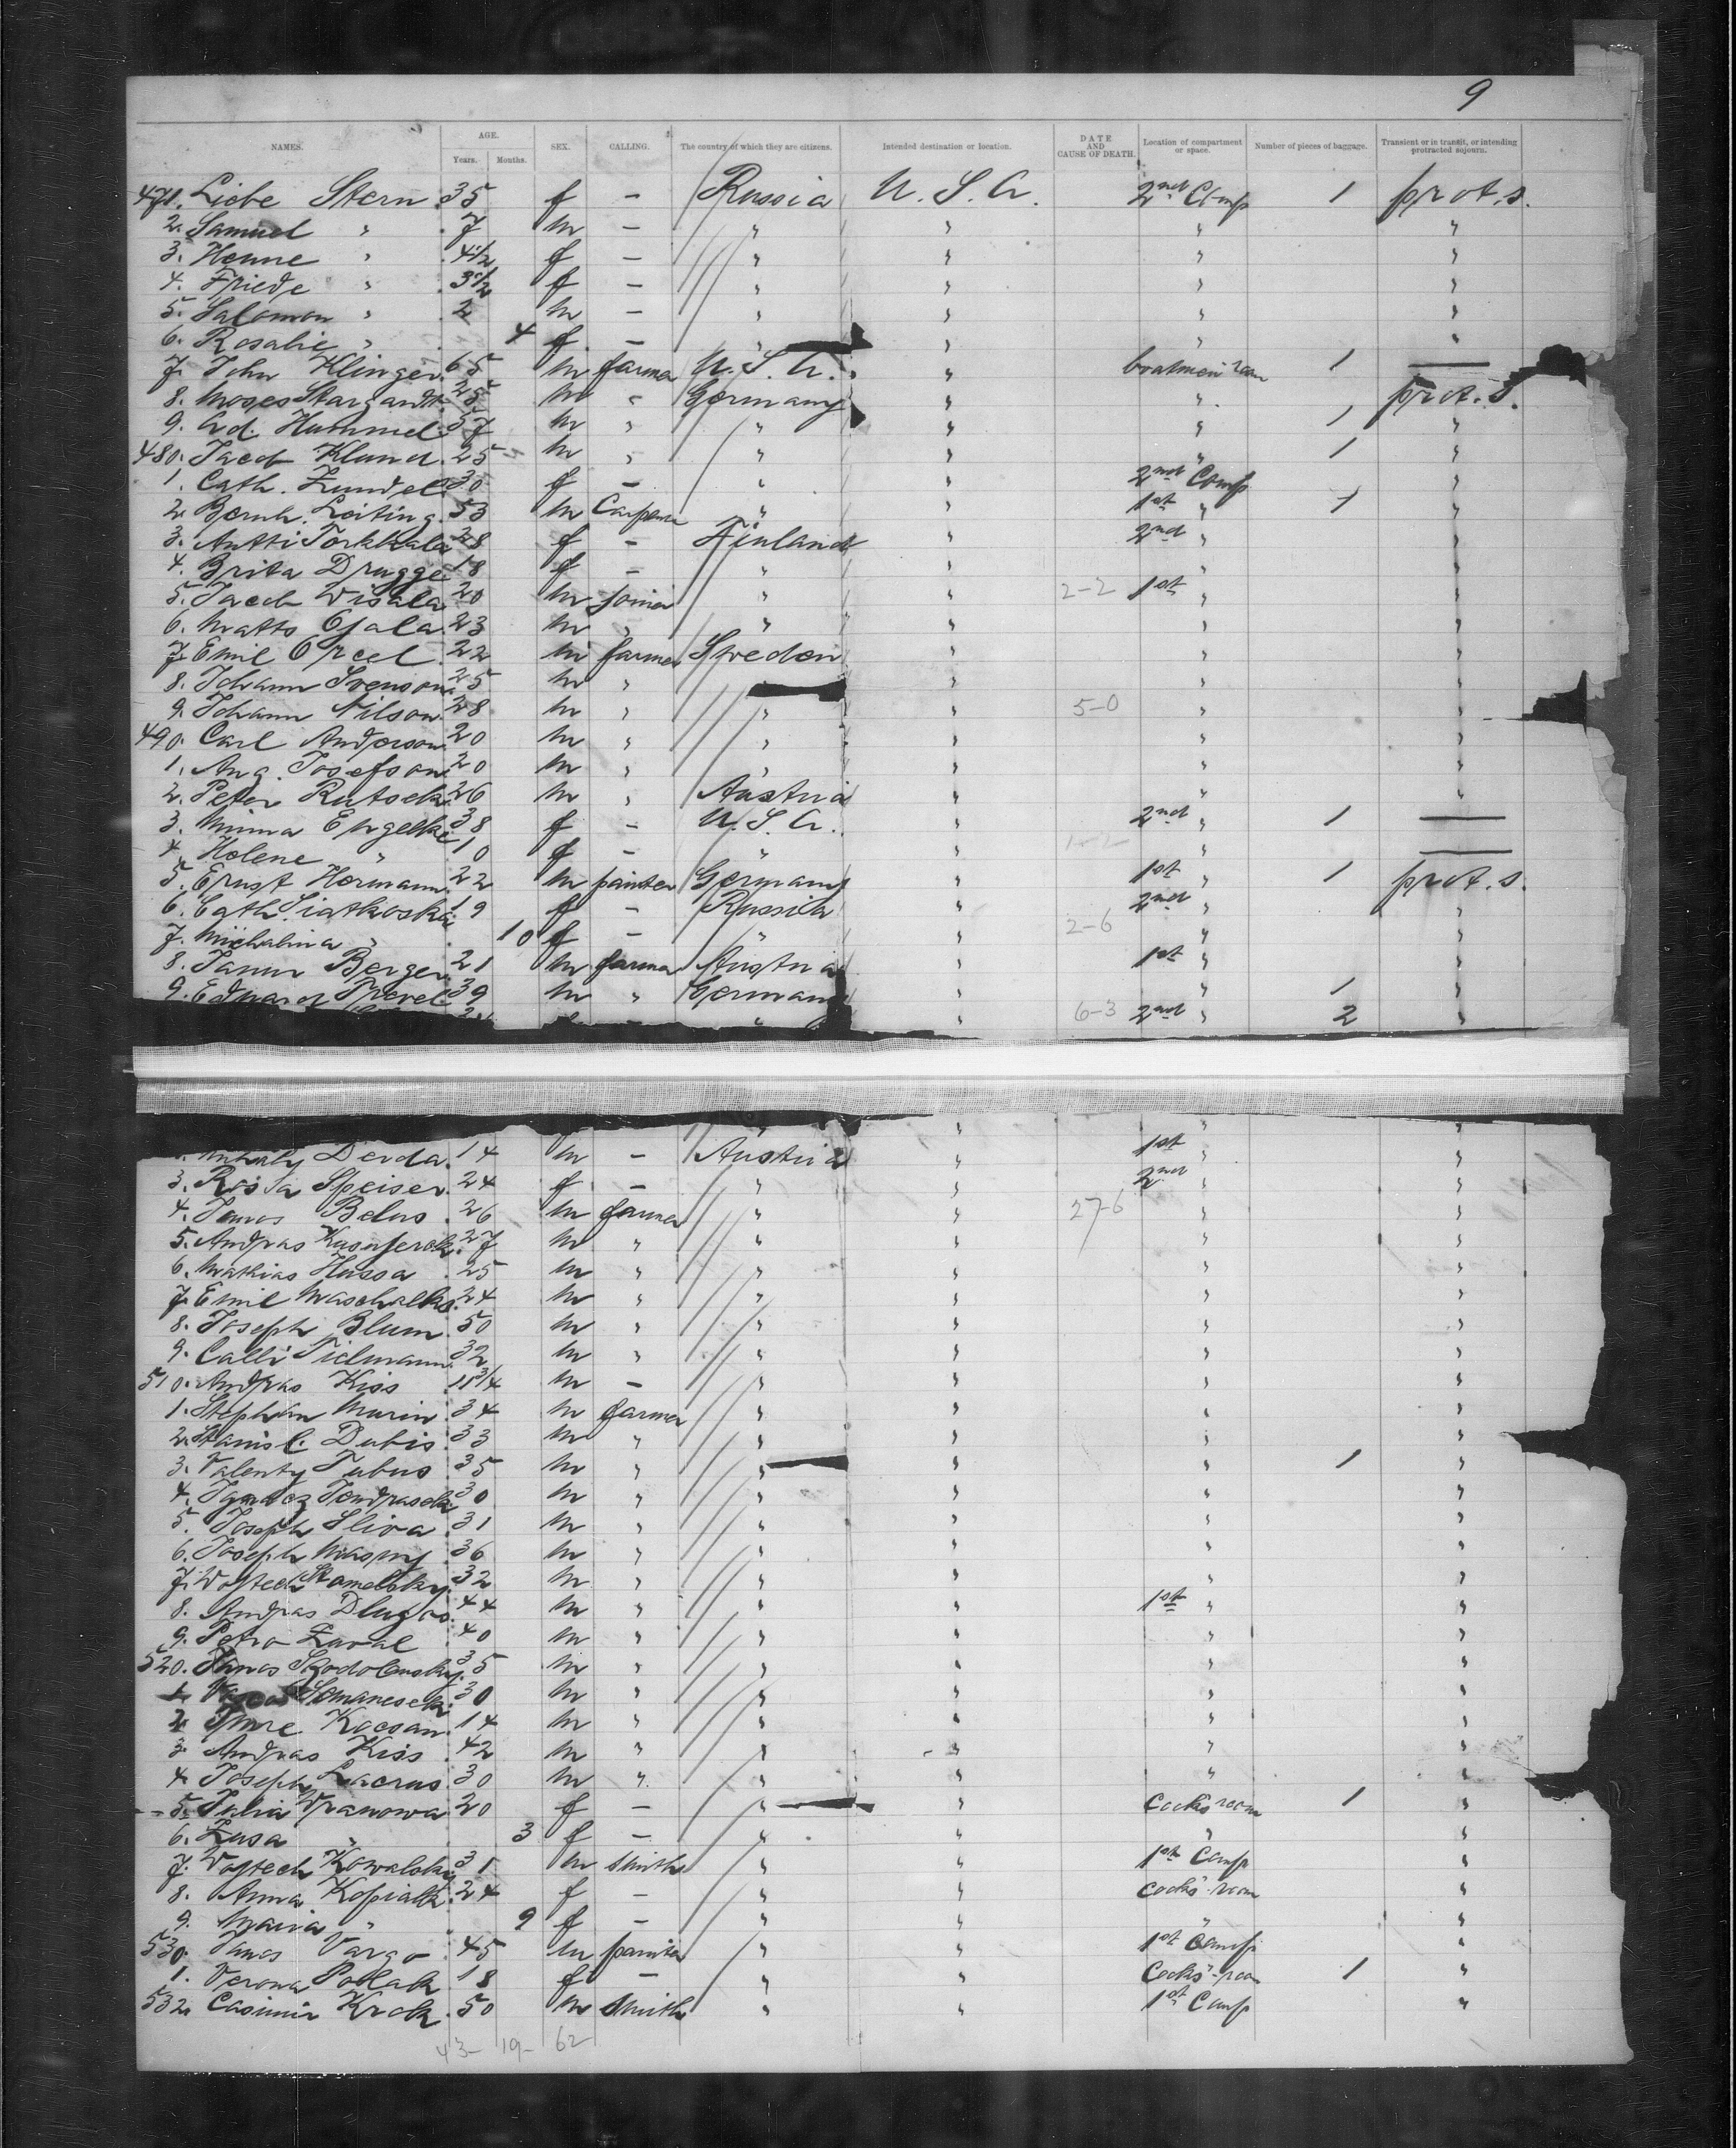 9
NAMES. AGE. Years. Months. SEX. CALLING. The country of which they are citizens. Intended destination or location. DATE AND CAUSE OF DEATH. Location of compartment or space. Number of pieces of baggage. Transient or in transit, or intending protracted sojourn.
471. Liebe Stern 35 f — Russia U. S. A. 2nd Comp 1 prot. s.
2. Samuel " 7 m — " " " "
3. Henne " 4 1/2 f — " " " "
4. Friede " 3 1/2 f — " " " "
5. Salomon " 2 m — " " " "
6. Rosalie " 4 f — " " " "
7. John Klinger 65 m farmer U. S. A. " 1 —
8. Moses Stargardt 25 m " Germany " " prot. s.
9. Ad. Hummel 57 m " " " " 1 "
480. Jacob Klund 25 m " " " " 1 "
1. Cath. Zundel 30 f — " " 2nd Comp "
2. Bernh. Loiting 53 m " " 1st " 1 "
3. Antti Torkkala 28 f — Finland " 2nd " "
4. Brita Drugge 18 f — " " " "
5. Jacob Wisala 20 m joiner " " 2-2 1st " "
6. Matts Ojala 23 m " " " " "
7. Emil Orcel 22 m farmer Sweden " " "
8. Johann Svenson 25 m " " " "
9. Johann Nilson 28 m " " " 5-0 " "
490. Carl Anderson 20 m " " " " "
1. Aug. Josefson 20 m " " " " "
2. Peter Rutsek 26 m " Austria " " "
3. Minna Engelke 38 f — U. S. A. " 2nd " 1 —
4. Helene " 10 f — " " " —
5. Ernst Hermann 22 m painter Germany " 1st " 1 prot. s.
6. Cath. Siatkoska 19 f — Russia " 2nd " "
7. Michalina " 10 f — " " 2-6 " "
8. Janur Berger 21 m farmer Austria " 1st " "
9. Eduard Trevel 39 m " Germany " " 1 "
" " 6-3 2nd " 2 "
Derda 14 m — Austria " 1st " "
3. Rosa Speiser 24 f — " " 2nd " "
4. Janos Belus 26 m farmer " " 27-6 " "
5. Andras 27 m " " " " "
6. Mathias Hussa 25 m " " " " "
7. Emil Maschalko 24 m " " " " "
8. Joseph Blum 50 m " " " " "
9. Calli Tidmann 32 m " " " " "
510. Andras Kiss 11 3/4 m — " " " "
1. Stephan Murin 34 m farmer " " " "
2. Stanisl. Dubis 33 m " " " " "
3. Valenty Tubus 35 m " " " " 1 "
4. Ignacz 30 m " " " " "
5. Joseph Sliva 31 m " " " " "
6. Joseph 36 m " " " " "
7. Wojtech 32 m " " " " "
8. Andras Dlugos 44 m " " " 1st " "
9. Petro Zaval 40 m " " " " "
520. Janos 35 m " " " " "
1. 30 m " " " " "
2. Imre Kocsan 14 m " " " " "
3. Andras Kiss 42 m " " " " "
4. Joseph Lacrus 30 m " " " " "
5. Julia Vranowa 20 f — " " Cooks room 1 "
6. Zusa " 3 f — " " " "
7. Wojtech Kowalsky 31 m smith " " 1st Comp "
8. Anna Kopiatk 24 f — " " Cooks' room "
9. Maria " 9 f — " " " "
530. Janos Vargo 45 m painter " " 1st Comp "
1. Verona Pollak 18 f — " " Cooks' room 1 "
532. Casimir Krok 50 m smith " " 1st Comp "
43- 19- 62